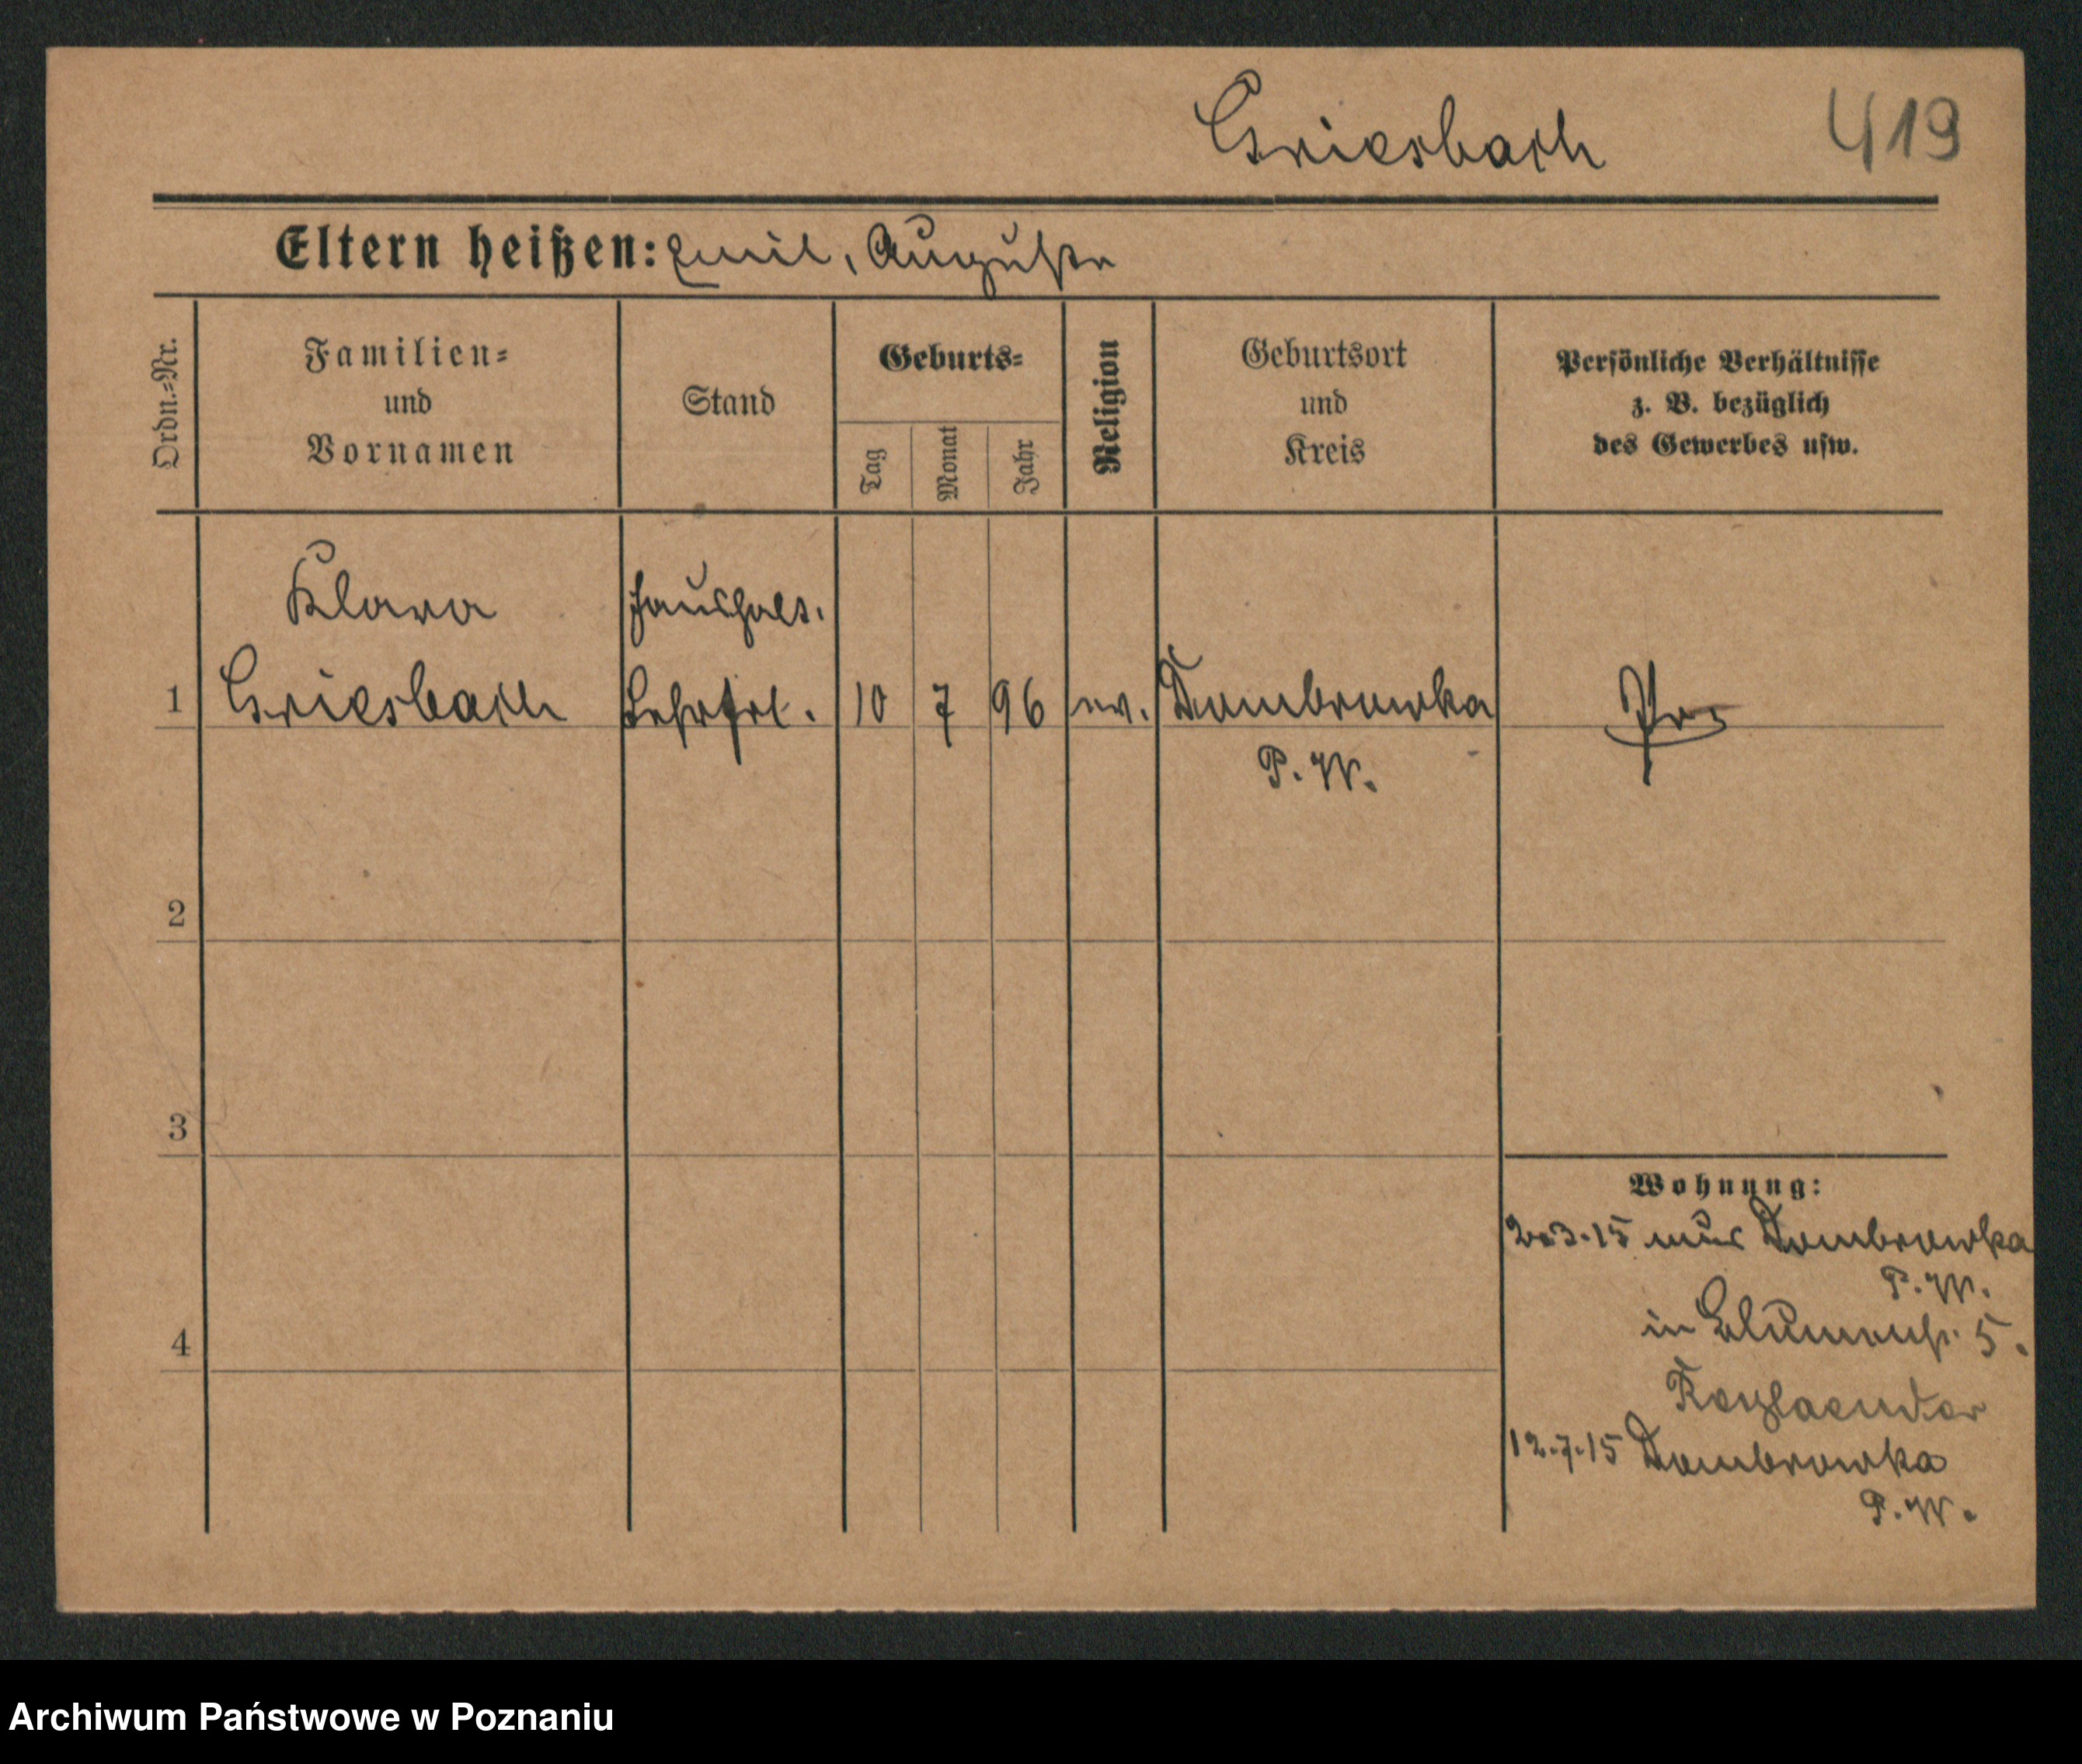 Griesbach 419
Eltern heißen: Emil, Auguste
Ordn.-Nr.
Familien-
und
Vornamen
Stand
Geburts-
Tag
Monat
Jahr
Religion
Geburtsort
und
Kreis
Persönliche Verhältnisse
z. B. bezüglich
des Gewerbes usw.
Klara Haushalt.
1 Griesbach Lehrfrl. 10 7 96 ev. Dombrowka Pr.
P. W.
2
3
4
Wohnung:
2.3.15 aus Dombrowka
P. W.
in Blumenstr. 5.
12.7.15 Dombrowka
P. W.
Archiwum Państwowe w Poznaniu